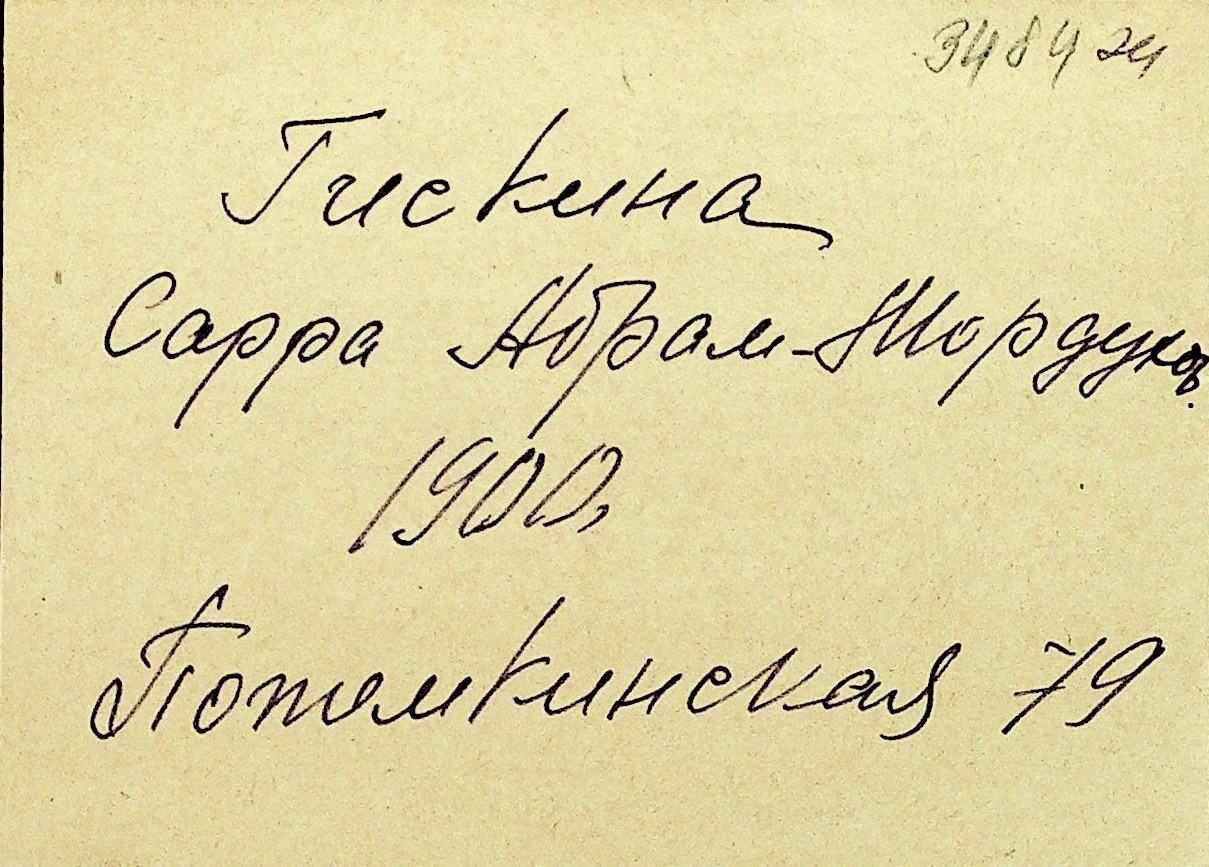 3484 эч
Гискина
Сарра Абрам-Мордухов.
1900.
Потемкинская 79